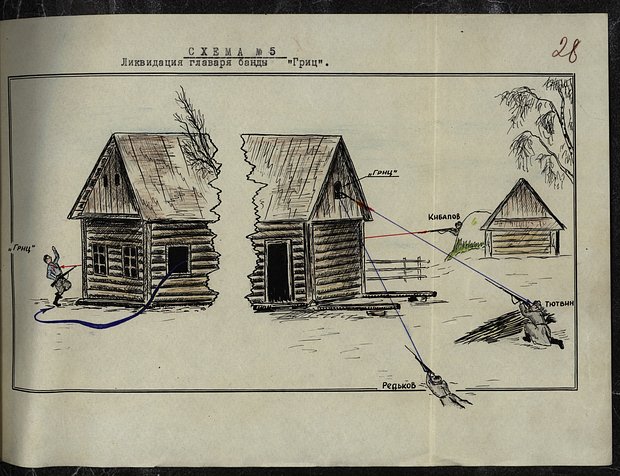 СХЕМА № 5
Ликвидация главаря банды "Гриц".
28
„Гриц"
„Гриц"
Кибапов
Тютвин
Редьков